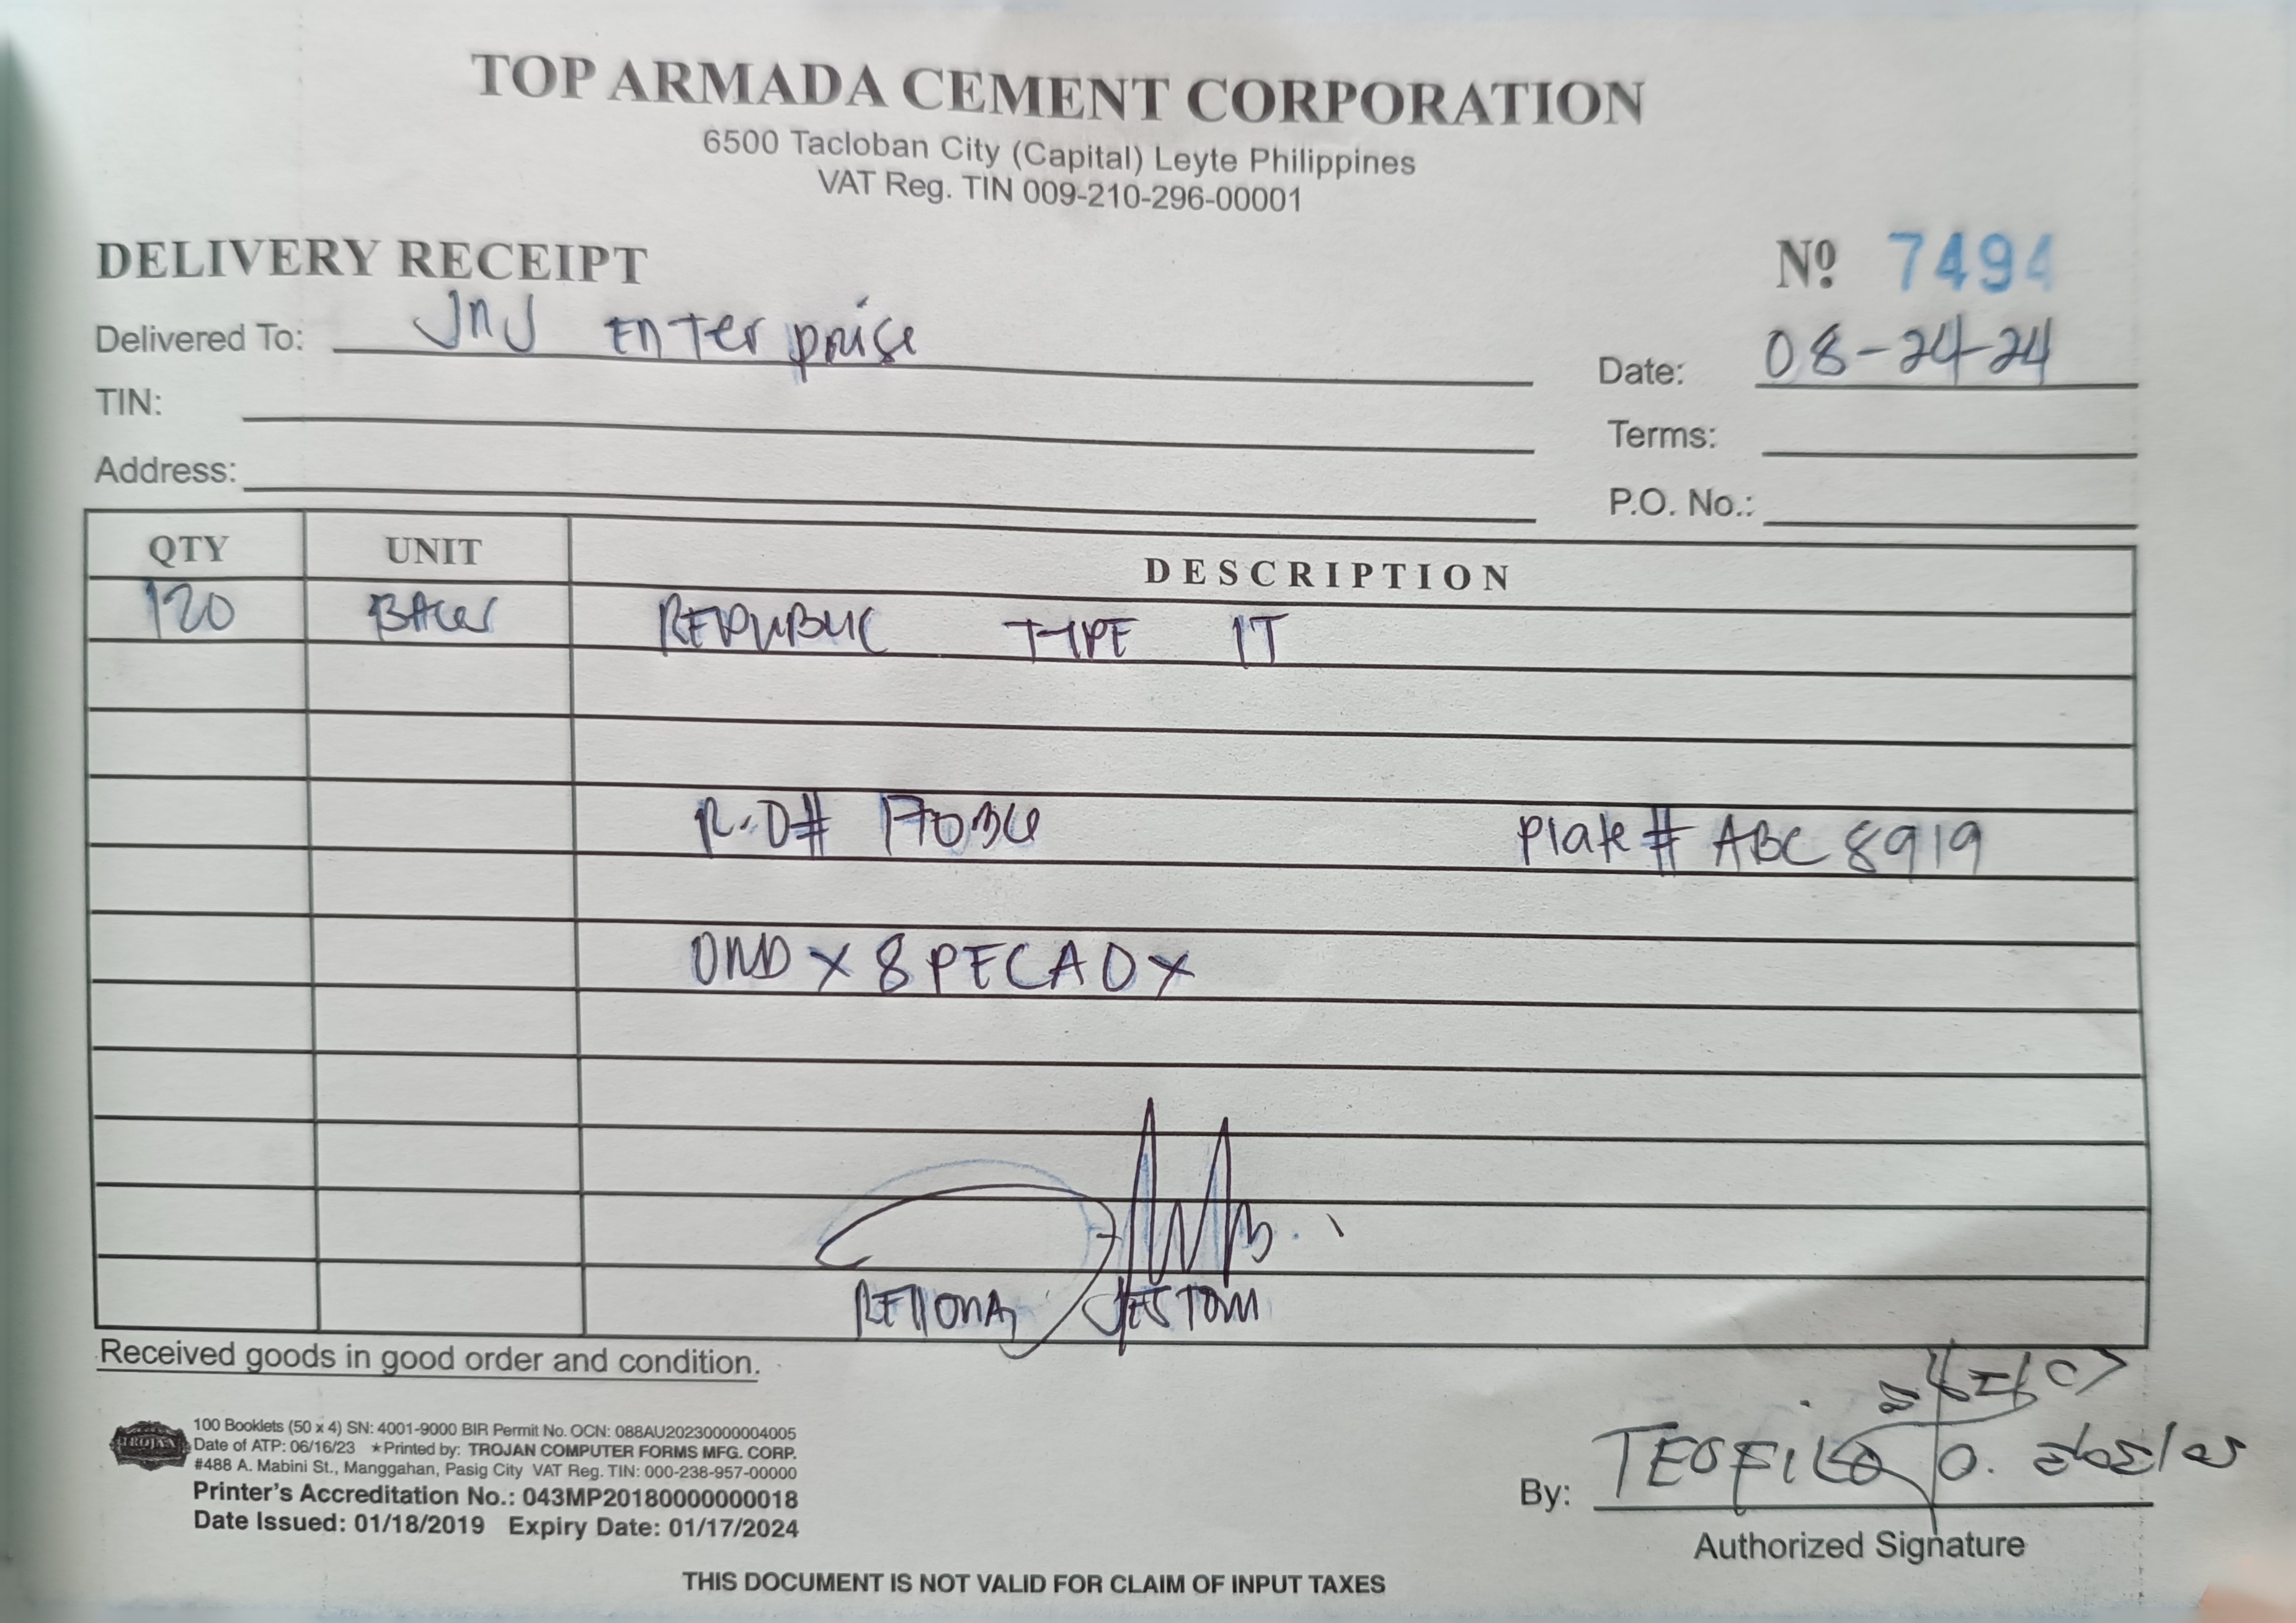 TOP ARMADA CEMENT CORPORATION
6500 Tacloban City (Capital) Leyte Philippines
VAT Reg. TIN 009-210-296-00001
DELIVERY RECEIPT
Nº 7494
Delivered To: JNJ Enterprise
Date: 08-24-24
TIN:
Terms:
Address:
P.O. No.:
QTY UNIT DESCRIPTION
120 BAGS REPUBLIC TYPE 1T
Plate # ABC 8919
Received goods in good order and condition.
TROJAN
100 Booklets (50 x 4) SN: 4001-9000 BIR Permit No. OCN: 088AU20230000004005
Date of ATP: 06/16/23 ★Printed by: TROJAN COMPUTER FORMS MFG. CORP.
#488 A. Mabini St., Manggahan, Pasig City VAT Reg. TIN: 000-238-957-00000
Printer's Accreditation No.: 043MP20180000000018
Date Issued: 01/18/2019 Expiry Date: 01/17/2024
By: TEOFILO O.
Authorized Signature
THIS DOCUMENT IS NOT VALID FOR CLAIM OF INPUT TAXES